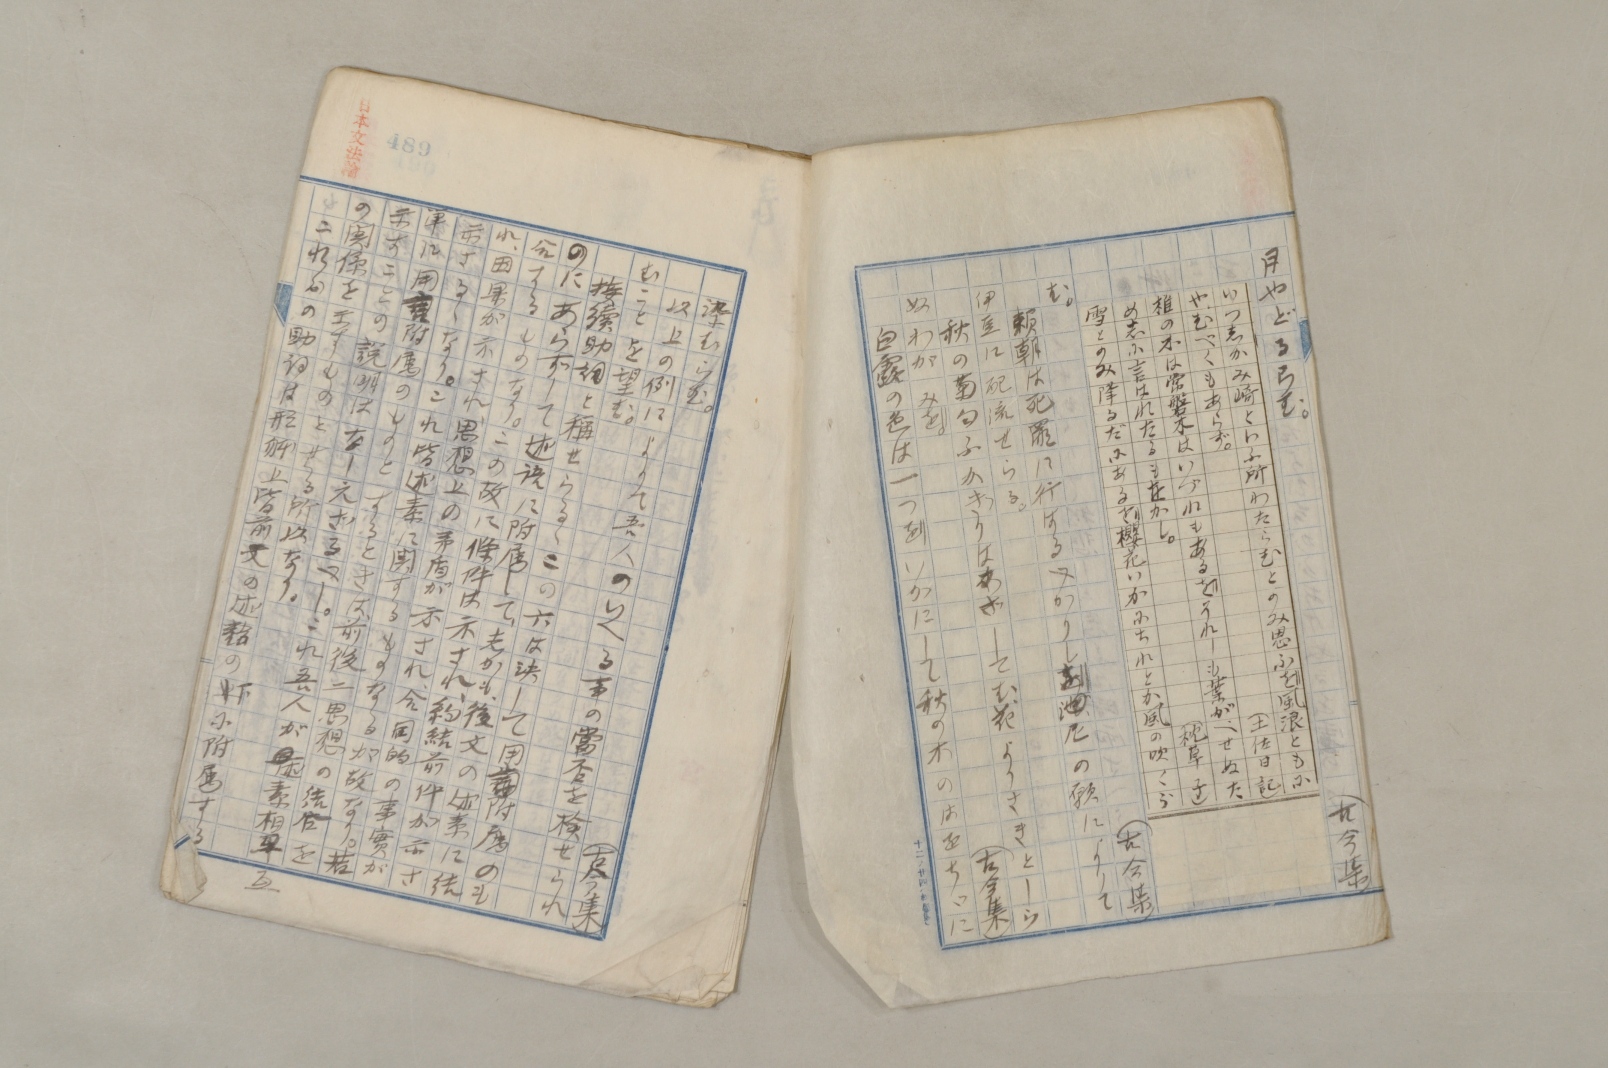 月やどるらむ。
(古今集)
いつしかみ崎といふ所わたらむとのみ思ふを風浪ともに
(土佐日記
やむべくもあらず。
椎の木は常磐木はいづれもあるをそれしも葉がへせぬた
めしに言はれたるもをかし。
(枕草子
雪とのみ降るだにあるを櫻花いかにちれとか風の吹くら
む。
(古今集)
頼朝は死罪に行はるべかりしを池尼の願によりて
伊豆に配流せらる。
秋の菊匂ふかぎりはかざしてむ花よりさきとしら
ぬわがみを。
(古今集)
白露の色は一つをいかにして秋の木のはをちゝに
染むらむ。
(古今集)
以上の例によりて吾人のいへる事の當否を検せられ
むことを望む。
接續助詞と稱せらるゝこの六は決して用言附属のも
のにあらずして述語に附属して、しかも、後文の述素に結
合するものなり。この故に條件は示され、約結前件が示さ
れ、因果が示され、思想上の矛盾が示され、合同的の事實が
示さるゝなり。これ皆述素に関するものなるが故なり。若
単に用言附属のものとするときは前後二思想の結合を
示すことの説明はなし元ざるべし。これ吾人が述素相互
の関係を示すものとせる所以なり。
これらの助詞は形躰上皆前文の述語の下に附属する
日本文法論
489